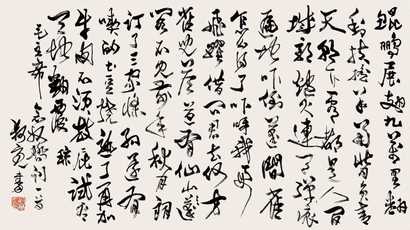 鲲鹏展翅九万里翻
动扶摇羊角背负青
天朝下看都是人间
城郭炮火连天弹痕
遍地吓倒蓬间雀
怎么得了哎呀我要
飞跃借问君去何方
雀儿答道有仙山琼
阁不见前年秋月朗
订了三家条约还有
吃的土豆烧熟了再加
牛肉不须放屁试看
天地翻覆 录
毛主席念奴娇词一首
书